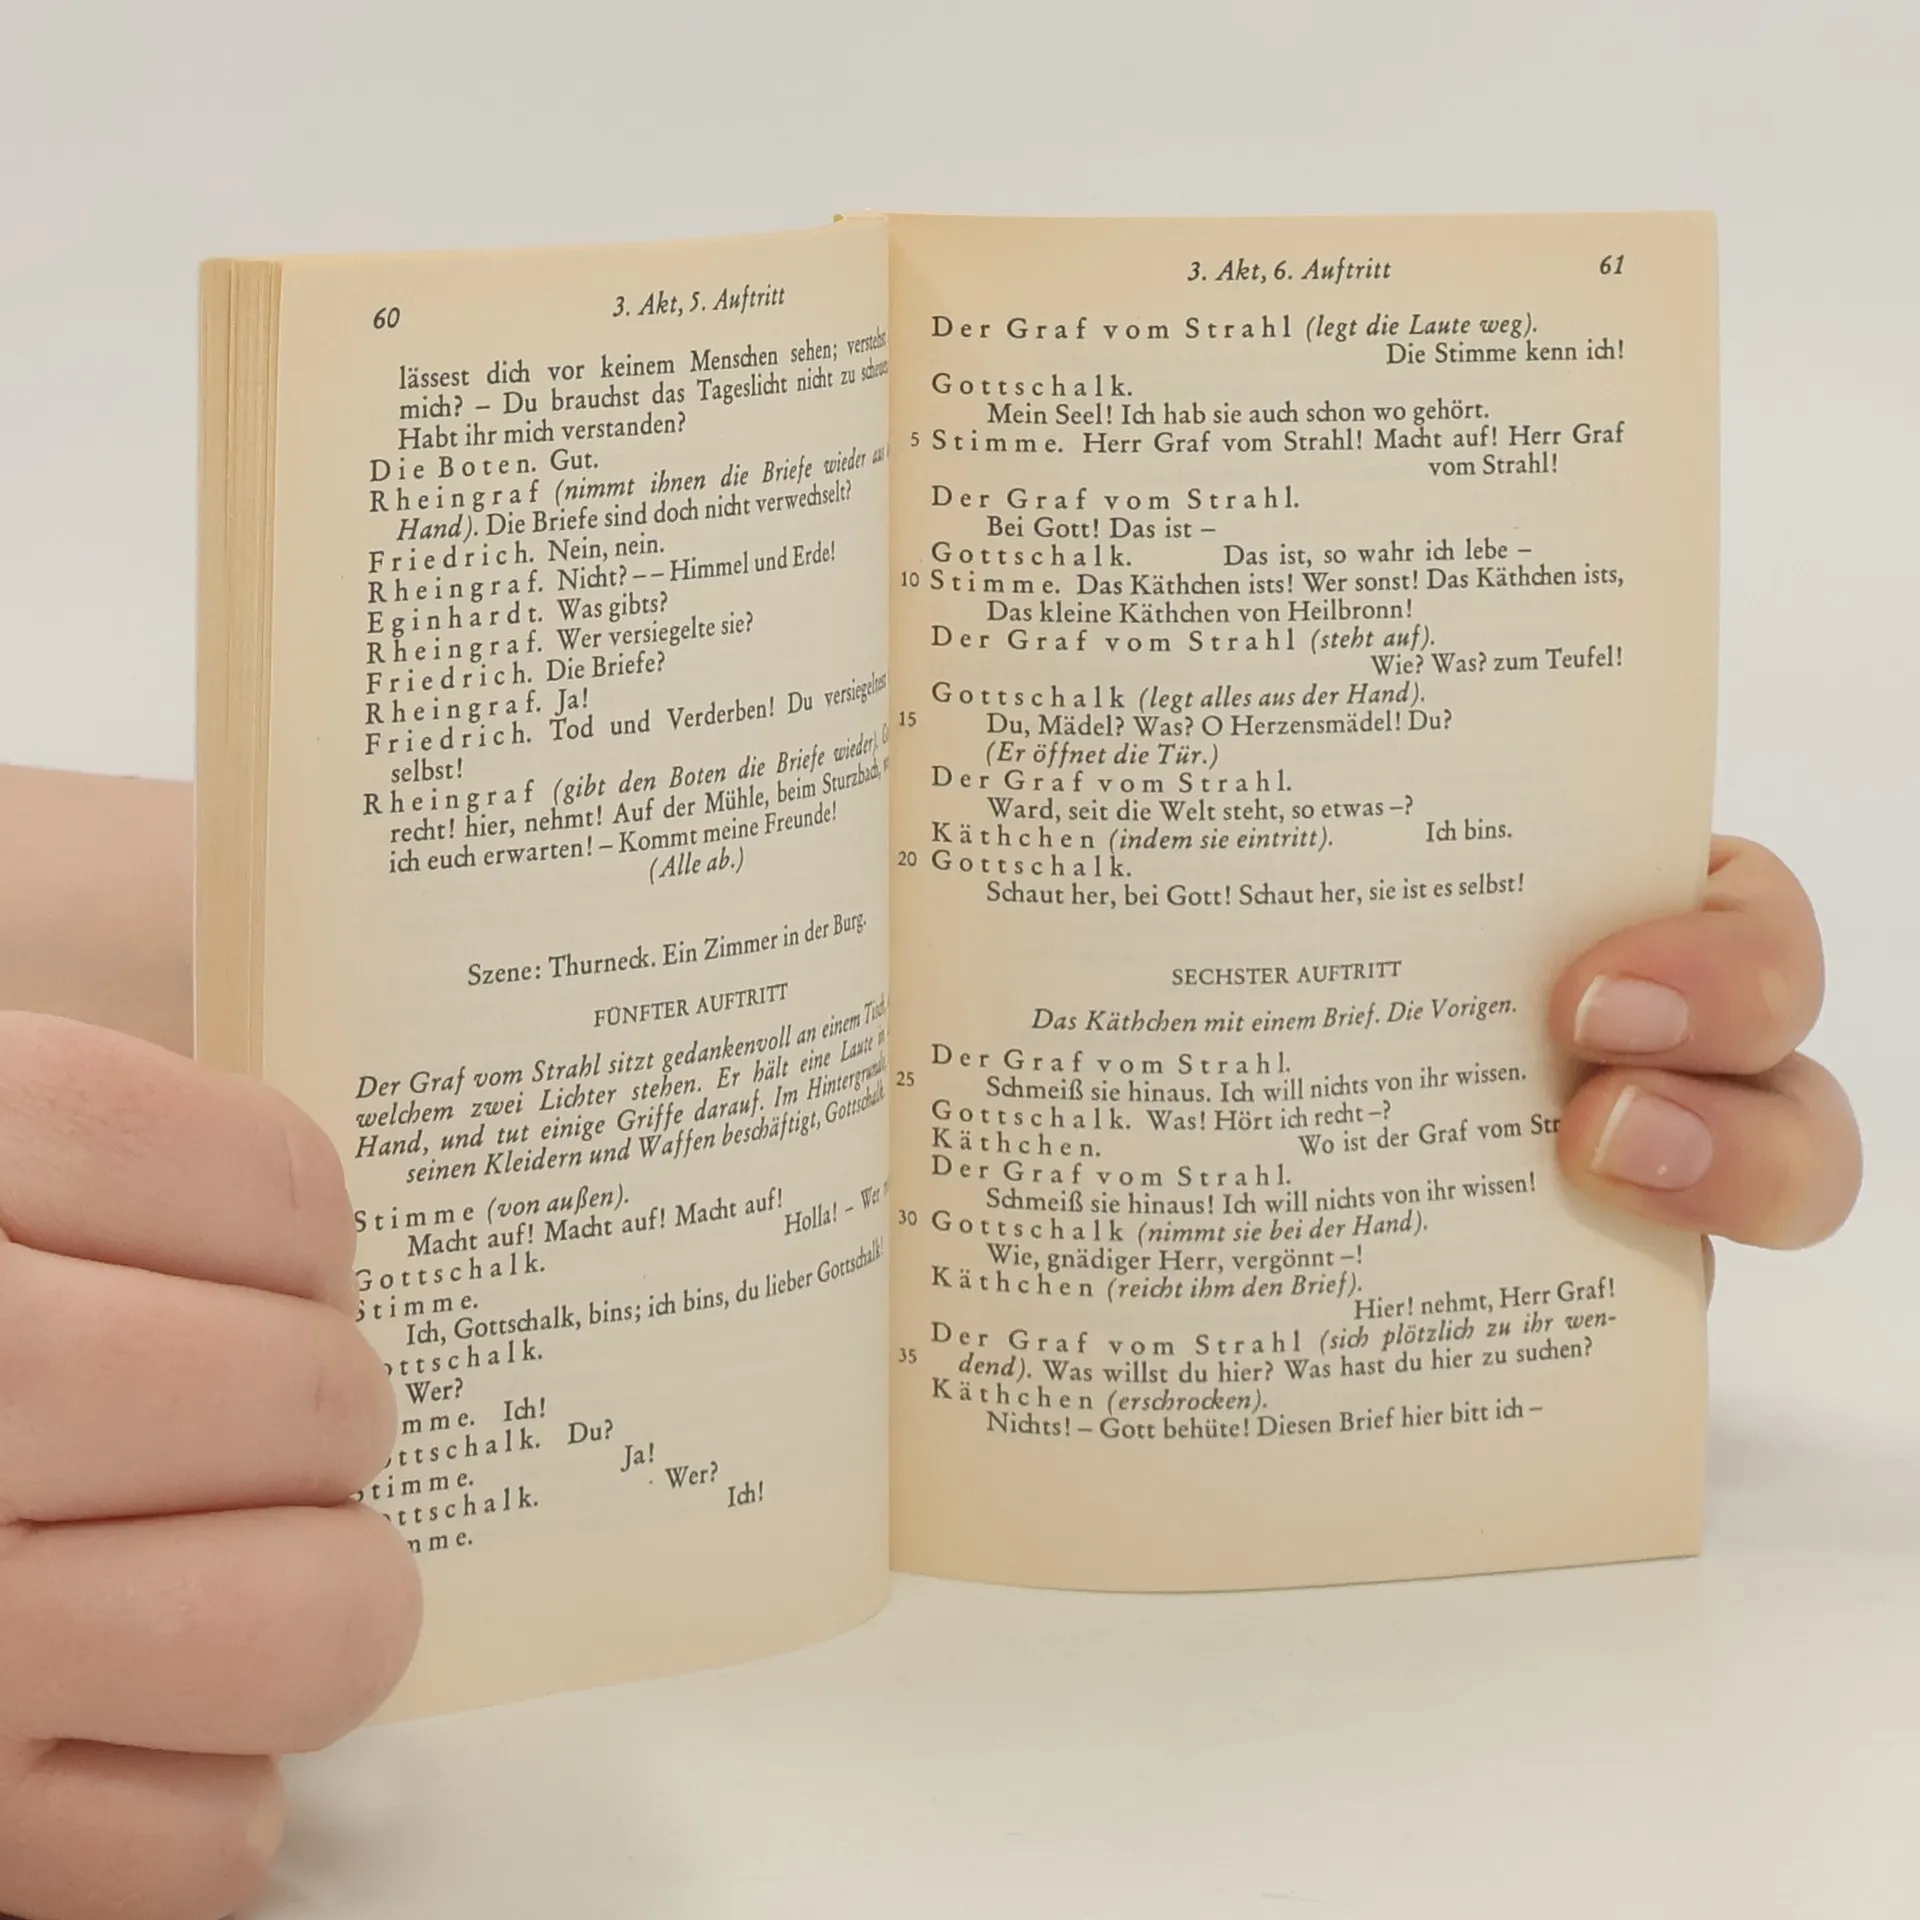 60
3. Akt, 5. Auftritt
lässest dich vor keinem Menschen sehen;
mich? – Du brauchst das Tageslicht nicht zu
Habt ihr mich verstanden?
Die Boten. Gut.
Rheingraf (nimmt ihnen die Briefe wieder aus
Hand). Die Briefe sind doch nicht verwechselt?
Friedrich. Nein, nein.
Rheingraf. Nicht? –– Himmel und Erde!
Eginhardt. Was gibts?
Rheingraf. Wer versiegelte sie?
Friedrich. Die Briefe?
Rheingraf. Ja!
Friedrich. Tod und Verderben! Du versiegeltest
selbst!
Rheingraf (gibt den Boten die Briefe wieder).
recht! hier, nehmt! Auf der Mühle, beim Sturzbach,
ich euch erwarten! – Kommt meine Freunde!
(Alle ab.)
Szene: Thurneck. Ein Zimmer in der Burg.
FÜNFTER AUFTRITT
Der Graf vom Strahl sitzt gedankenvoll an einem Tisch,
welchem zwei Lichter stehen. Er hält eine Laute
Hand, und tut einige Griffe darauf. Im Hintergrunde,
seinen Kleidern und Waffen beschäftigt, Gottschalk.
Stimme (von außen).
Macht auf! Macht auf! Macht auf!
Holla! – Wer
Gottschalk.
Stimme.
Ich, Gottschalk, bins; ich bins, du lieber Gottschalk!
ottschalk.
Wer?
mme. Ich!
ttschalk. Du?
Stimme. Ja!
ottschalk. Wer?
mme. Ich!
3. Akt, 6. Auftritt
61
Der Graf vom Strahl (legt die Laute weg).
Die Stimme kenn ich!
Gottschalk.
Mein Seel! Ich hab sie auch schon wo gehört.
5 Stimme. Herr Graf vom Strahl! Macht auf! Herr Graf
vom Strahl!
Der Graf vom Strahl.
Bei Gott! Das ist –
Gottschalk. Das ist, so wahr ich lebe –
10 Stimme. Das Käthchen ists! Wer sonst! Das Käthchen ists,
Das kleine Käthchen von Heilbronn!
Der Graf vom Strahl (steht auf).
Wie? Was? zum Teufel!
Gottschalk (legt alles aus der Hand).
15 Du, Mädel? Was? O Herzensmädel! Du?
(Er öffnet die Tür.)
Der Graf vom Strahl.
Ward, seit die Welt steht, so etwas –?
Käthchen (indem sie eintritt). Ich bins.
20 Gottschalk.
Schaut her, bei Gott! Schaut her, sie ist es selbst!
SECHSTER AUFTRITT
Das Käthchen mit einem Brief. Die Vorigen.
Der Graf vom Strahl.
25 Schmeiß sie hinaus. Ich will nichts von ihr wissen.
Gottschalk. Was! Hört ich recht –?
Käthchen. Wo ist der Graf vom Str
Der Graf vom Strahl.
Schmeiß sie hinaus! Ich will nichts von ihr wissen!
30 Gottschalk (nimmt sie bei der Hand).
Wie, gnädiger Herr, vergönnt –!
Käthchen (reicht ihm den Brief).
Hier! nehmt, Herr Graf!
Der Graf vom Strahl (sich plötzlich zu ihr wen-
35 dend). Was willst du hier? Was hast du hier zu suchen?
Käthchen (erschrocken).
Nichts! – Gott behüte! Diesen Brief hier bitt ich –